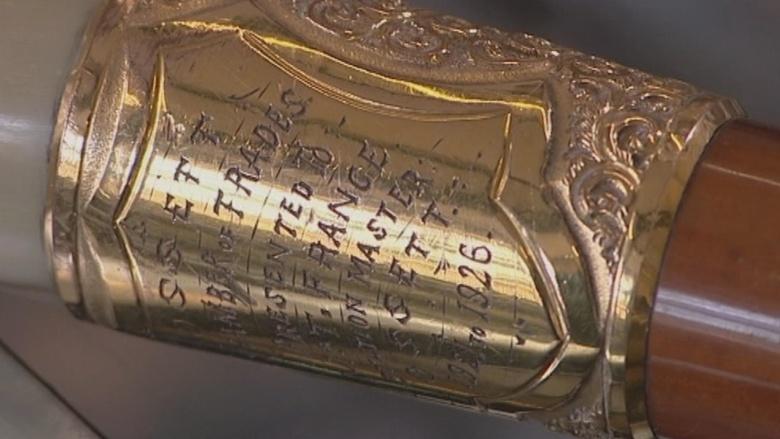 SSETT
MBER OF TRADES
RESENTED TO
AT. FRANCE
TION MASTER
OSSETT.
TO 1926.